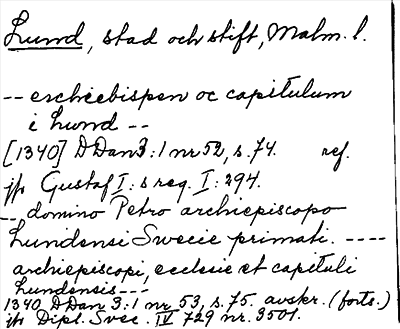 Lund, stad och stift, Malm. l.
-- erchiebispen oc capitulum
i Lund --
[1340] DDan 3:1 nr 52, s. 74. ref.
jfr Gustaf I:s reg. I: 294.
-- domino Petro archiepiscopo
Lundensi Swecie primati. ----
archiepiscopi, ecclesie et capituli
Lundensis ---
1340 DDan 3:1 nr 53, s. 75. avskr. (forts.)
jfr Dipl. Svec. IV 729 nr. 3501.